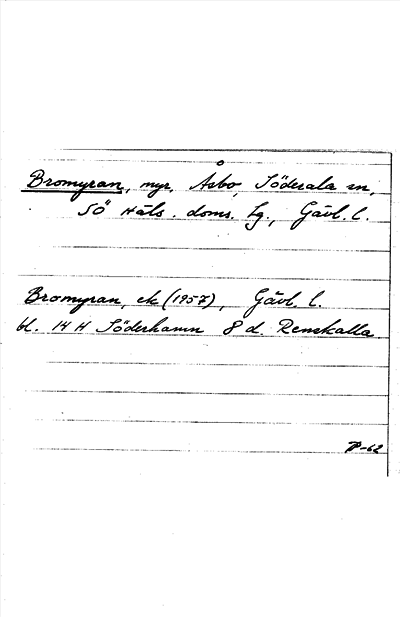 Bromyran, myr, Åsbo, Söderala sn,
SÖ Häls. doms. lg., Gävl. l.
Bromyran, ek (1957), Gävl. l.
bl. 14 H Söderhamn 8 d. Renskalla
P-62